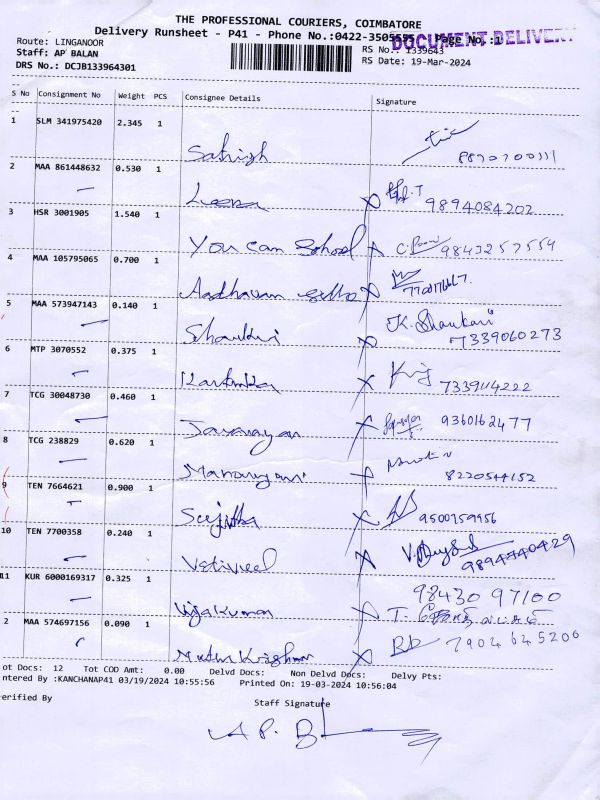 THE PROFESSIONAL COURIERS, COIMBATORE
Delivery Runsheet - P41 - Phone No.:0422-3505555 Page No.:1
DOCUMENT DELIVERY
Route: LINGANOOR
RS No.: 1339643
Staff: AP BALAN
RS Date: 19-Mar-2024
DRS No.: DCJB133964301
S No Consignment No Weight PCS Consignee Details Signature
1 SLM 341975420 2.345 1
Sathish 8870700111
2 MAA 861448632 0.530 1
Leena 9894084202
3 HSR 3001905 1.540 1
You can School 9843257554
4 MAA 105795065 0.700 1
Aadhavan
5 MAA 573947143 0.140 1
K. Shankari
7339060273
6 MTP 3070552 0.375 1
Karthika 7339114222
7 TCG 30048730 0.460 1
9360162477
8 TCG 238829 0.620 1
8220544152
9 TEN 7664621 0.900 1
Sujitha 9500759956
10 TEN 7700358 0.240 1
Vetrivel 9894740429
11 KUR 6000169317 0.325 1
98430 97100
Vijakumar T.
2 MAA 574697156 0.090 1
Muthu Krishnan 7904645200
ot Docs: 12 Tot COD Amt: 0.00 Delvd Docs: Non Delvd Docs: Delvy Pts:
ntered By :KANCHANAP41 03/19/2024 10:55:56 Printed On: 19-03-2024 10:56:04
erified By
Staff Signature
A P. B